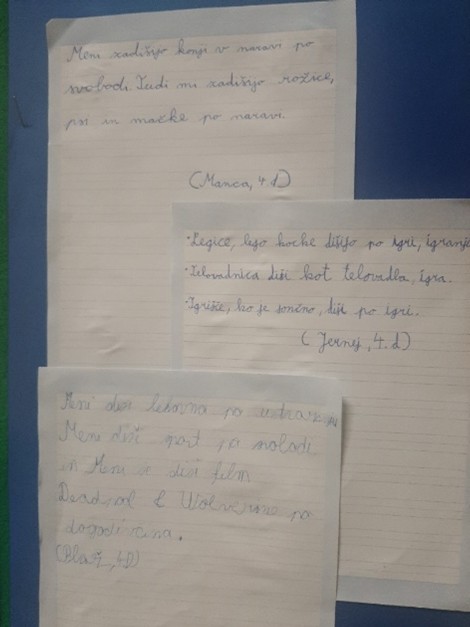 Meni zadišijo konji v naravi po
svobodi. Tudi mi zadišijo rožice,
psi in mačke po naravi.
(Manca, 4. d)
• Legice, lego kocke dišijo po igri, igranju
• Telovadnica diši kot telovadba, igra.
• Igrišče, ko je sončno, diši po igri.
(Jernej, 4. d)
Meni diši
Meni diši šport po svobodi
in Meni še diši film
Deadpool & Wolverine po
dogodivščina.
(Blaž, 4. D)